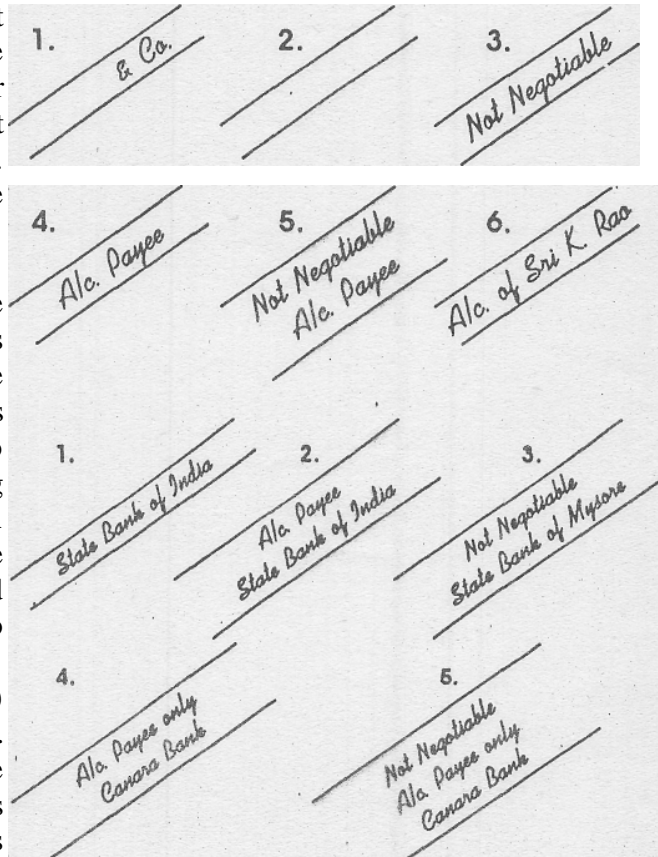 1.
& Co.
2.
3.
Not Negotiable
4.
A/c. Payee
5.
Not Negotiable
A/c. Payee
6.
A/c. of Sri K. Rao
1.
State Bank of India
2.
A/c. Payee
State Bank of India
3.
Not Negotiable
State Bank of Mysore
4.
A/c. Payee only
Canara Bank
5.
Not Negotiable
A/c. Payee only
Canara Bank